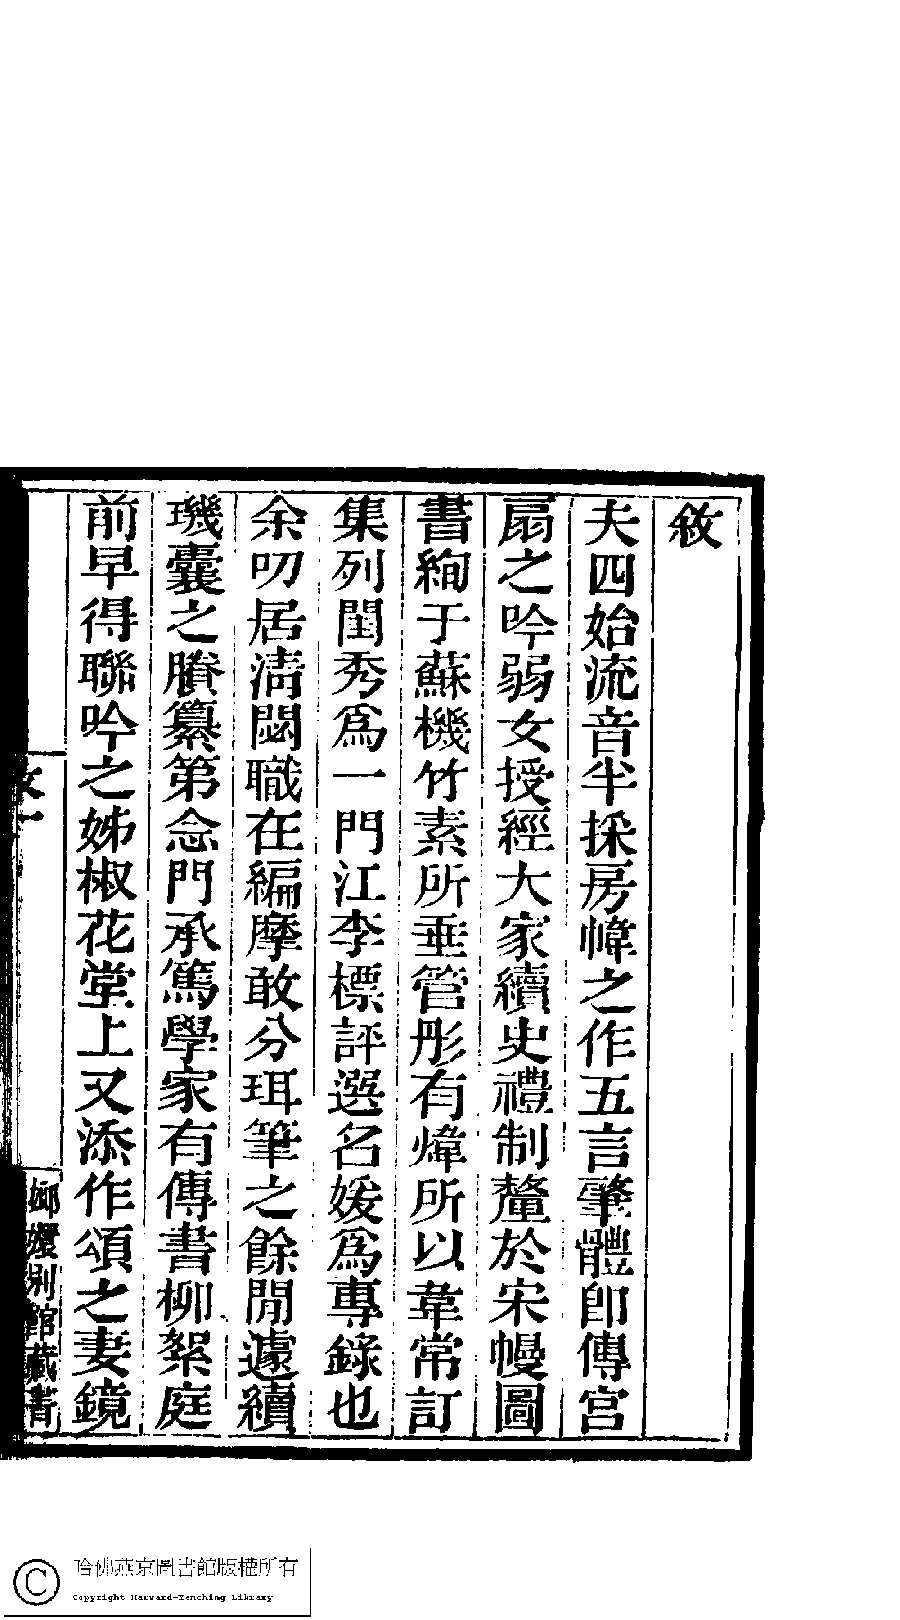 敘
夫四始流音半採房幃之作五言肇體卽傳宮
扇之吟弱女授經大家續史禮制釐於宋幔圖
書絢于蘇機竹素所垂管彤有煒所以韋常訂
集列閨秀爲一門江李標評選名媛爲專錄也
余叨居淸閟職在編摩敢分珥筆之餘閒遽續
璣囊之賸纂第念門承篤學家有傳書柳絮庭
前早得聯吟之姊椒花堂上又添作頌之妻鏡
敘一
嫏嬛別館藏書
哈佛燕京圖書館版權所有
Copyright Harvard-Yenching Library